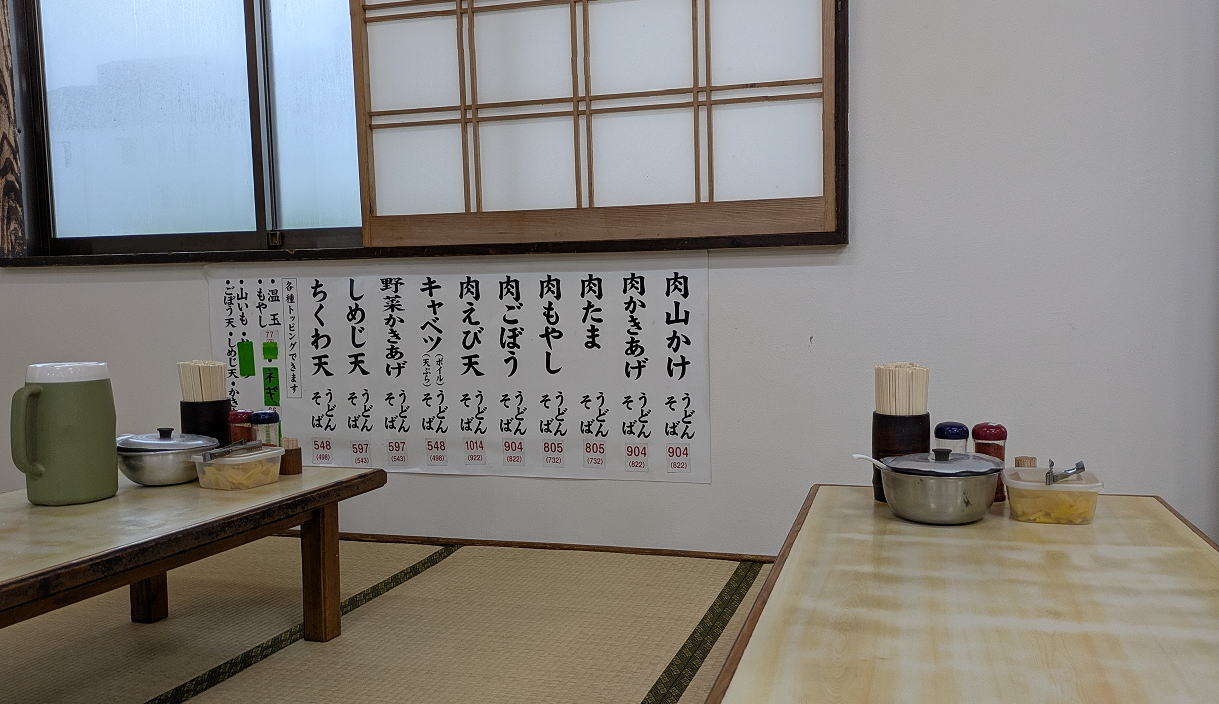 肉山かけ うどん そば 904 (822)
肉かきあげ うどん そば 904 (822)
肉たま うどん そば 805 (732)
肉もやし うどん そば 805 (732)
肉ごぼう うどん そば 904 (822)
肉えび天 うどん そば 1014 (922)
キャベツ (ボイル) (天ぷら) うどん そば 548 (498)
野菜かきあげ うどん そば 597 (543)
しめじ天 うどん そば 597 (543)
ちくわ天 うどん そば 548 (498)
各種トッピングできます
・温玉 77 ・ネギ
・もやし
・山いも
・ごぼう天・しめじ天・かき